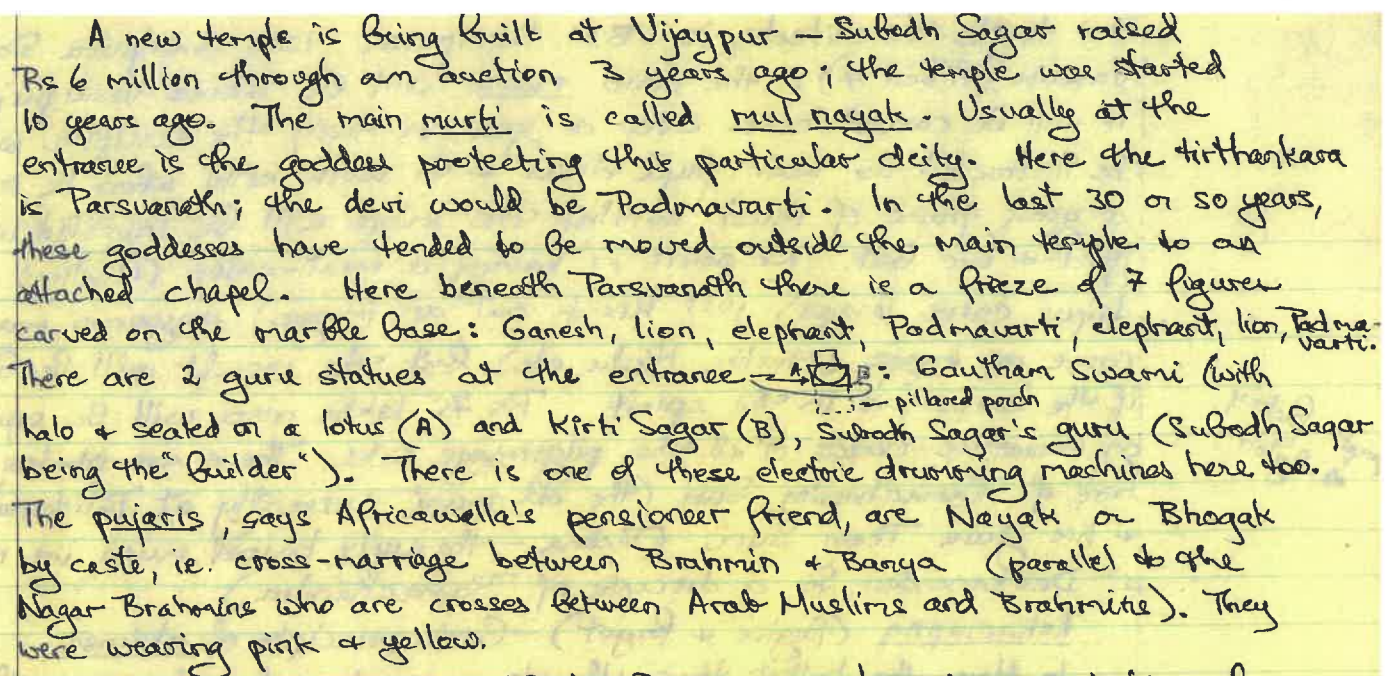 A new temple is being built at Vijaypur — Subodh Sagar raised
Rs 6 million through an auction 3 years ago; the temple was started
10 years ago. The main murti is called mul nayak. Usually at the
entrance is the goddess protecting this particular deity. Here the tirthankara
is Parsvanath; the devi would be Padmavarti. In the last 30 or so years,
these goddesses have tended to be moved outside the main temple to an
attached chapel. Here beneath Parsvanath there is a frieze of 7 figures
carved on the marble base: Ganesh, lion, elephant, Padmavarti, elephant, lion, Padma-
varti.
There are 2 guru statues at the entrance A B : Gautham Swami (with
pillared porch
halo + seated on a lotus (A) and Kirti Sagar (B), Subodh Sagar's guru (Subodh Sagar
being the "builder"). There is one of these electric drumming machines here too.
The pujaris, says Africawella's pensioneer friend, are Nayak or Bhogak
by caste, ie. cross-marriage between Brahmin + Banya (parallel to the
Nagar Brahmins who are crosses between Arab Muslims and Brahmins). They
were wearing pink + yellow.